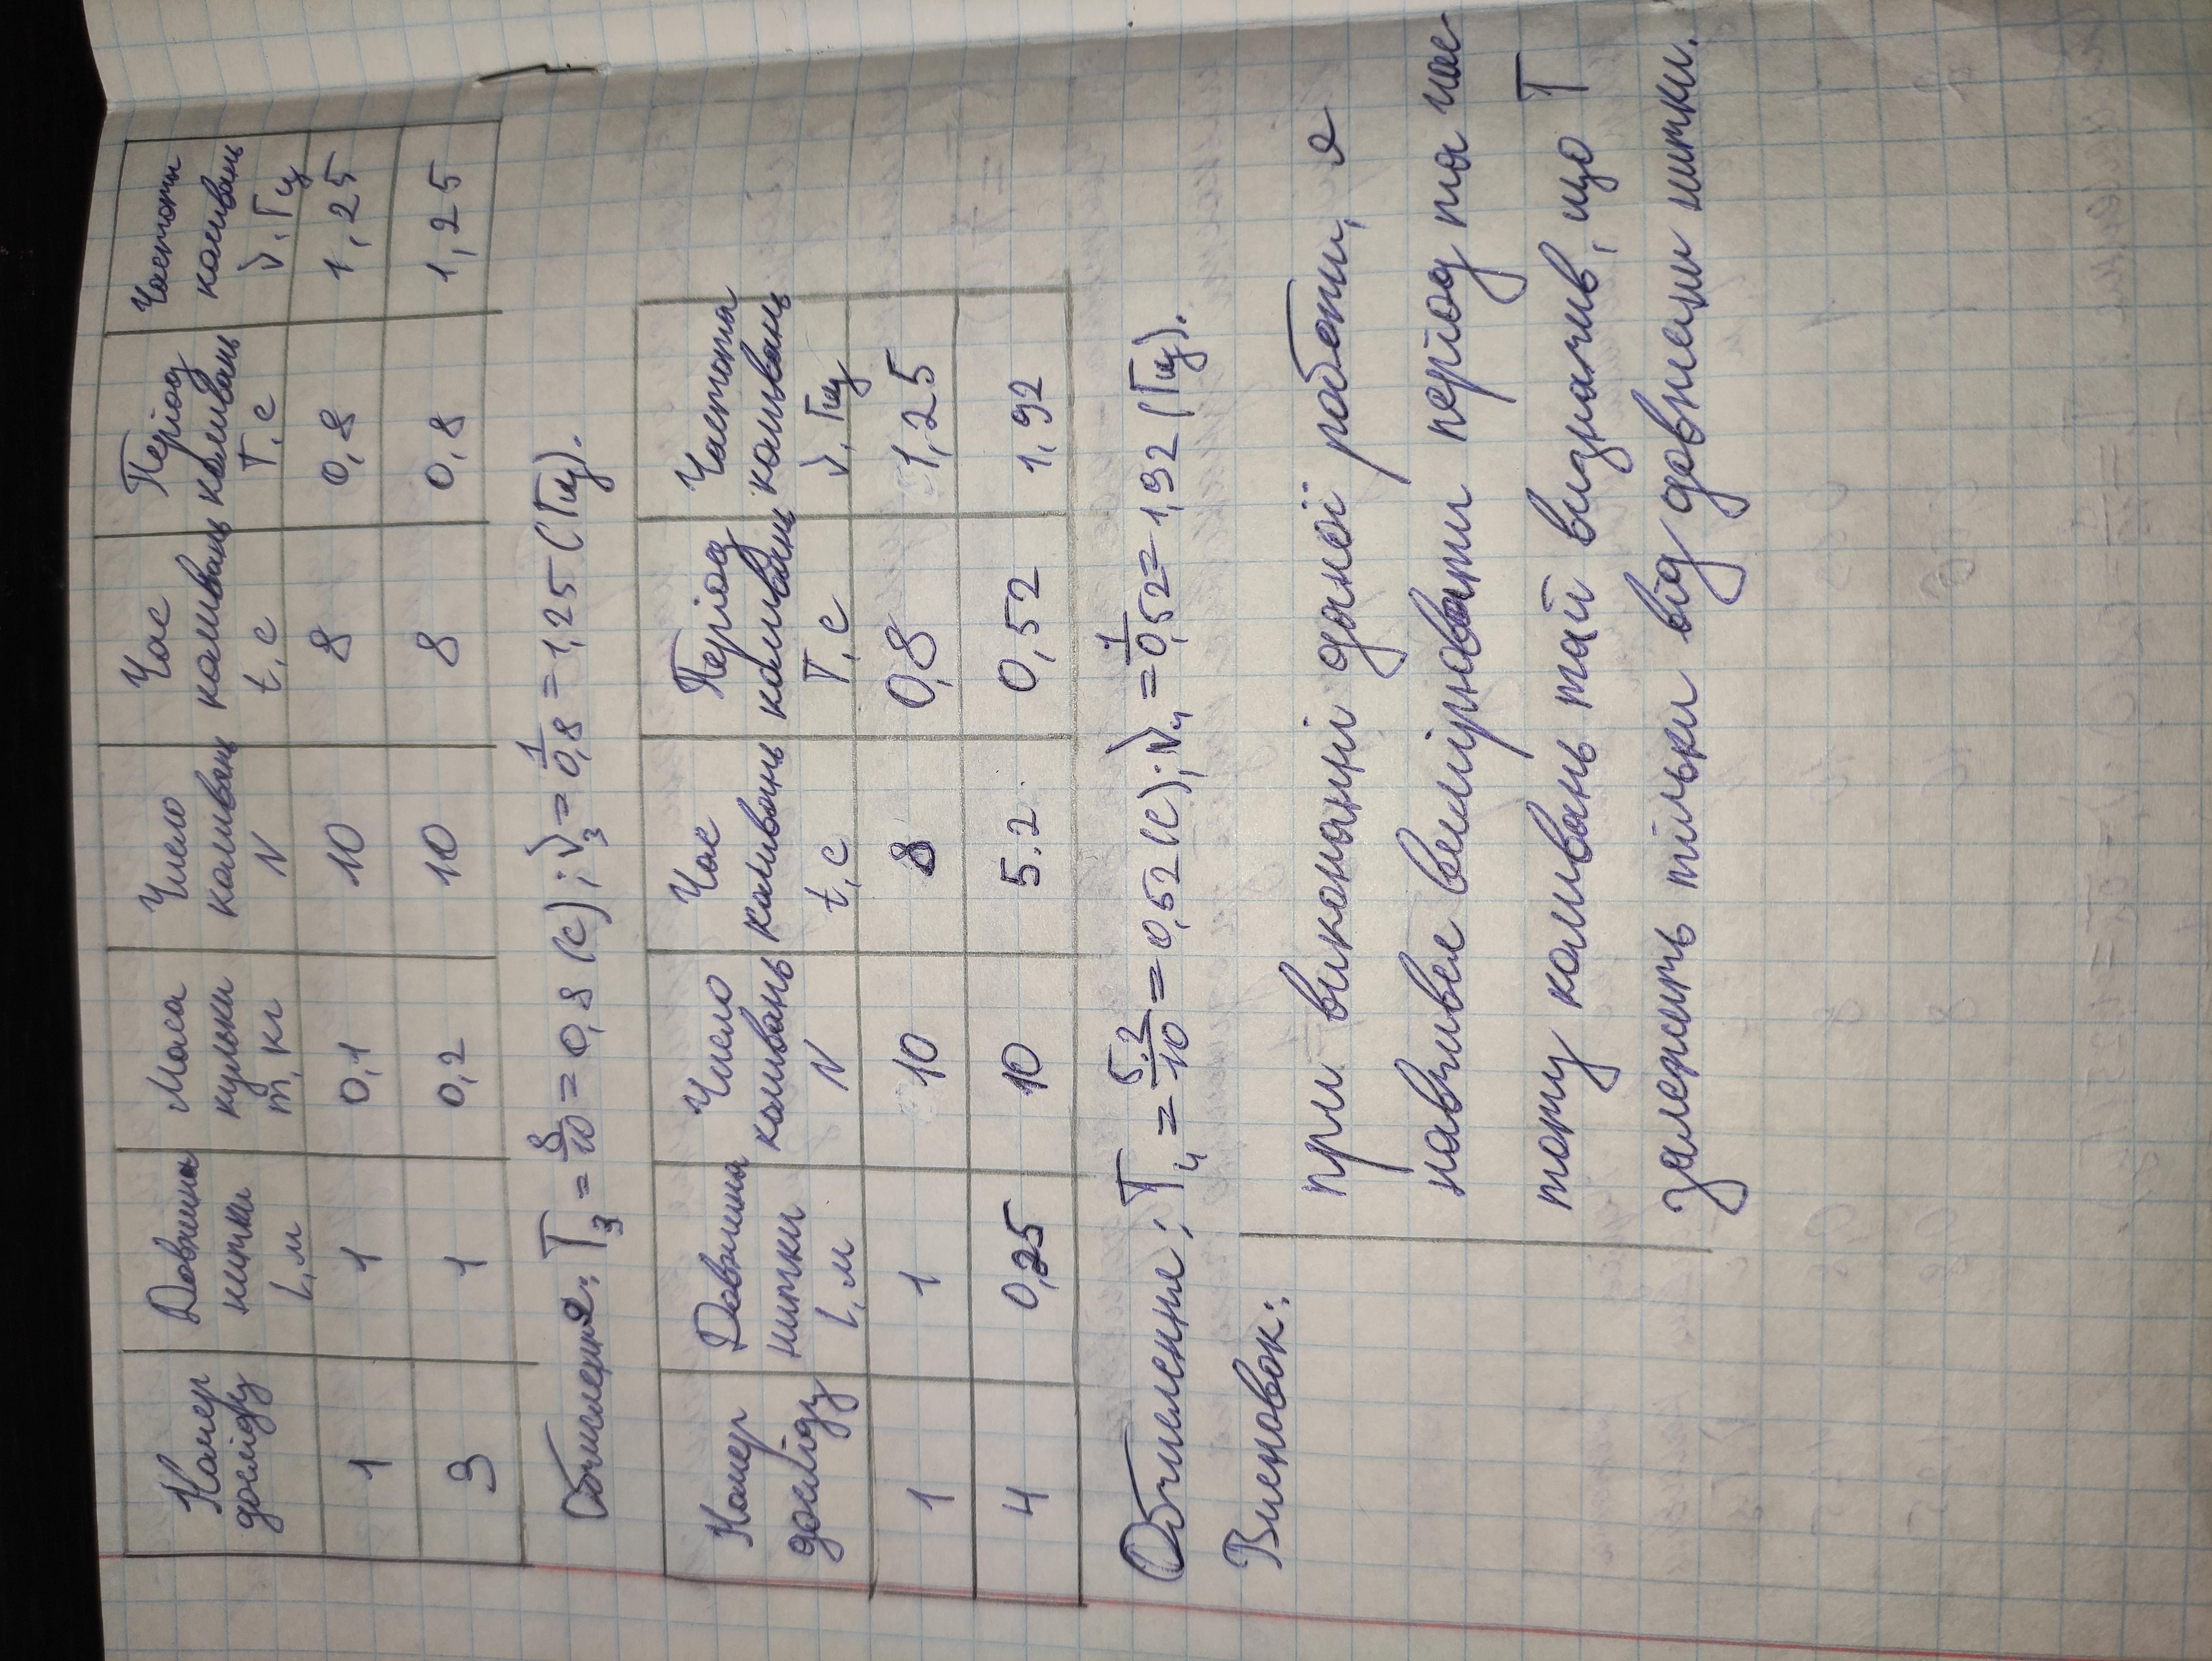 Номер досліду | Довжина нитки l, м | Маса кульки m, кг | Число коливань N | Час коливань t, с | Період коливань T, с | Частота коливань ν, Гц
1 | 1 | 0,1 | 10 | 8 | 0,8 | 1,25
3 | 1 | 0,2 | 10 | 8 | 0,8 | 1,25
Обчислення: T₃ = 8/10 = 0,8 (с); ν₃ = 1/0,8 = 1,25 (Гц).
Номер досліду | Довжина нитки l, м | Число коливань N | Час коливань t, с | Період коливань T, с | Частота коливань ν, Гц
1 | 1 | 10 | 8 | 0,8 | 1,25
4 | 0,25 | 10 | 5.2 | 0,52 | 1,92
Обчислення: T₄ = 5.2/10 = 0,52 (с); ν₄ = 1/0,52 = 1,92 (Гц).
Висновок:
при виконанні даної работи, я
навчився вимірювати період та час
тоту коливань тай визначив, що T
залежить тільки від довжини нитки.